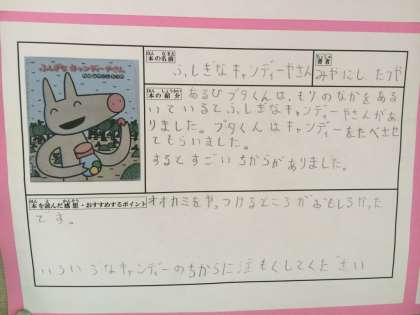 ふしぎなキャンディーやさん
ほん なまえ
本の名前
ふしぎなキャンディーやさん
ちょしゃ
著者
みやにし たつや
ほん しょうかい
本の紹介
あるひブタくんは、もりのなかをある
いているとふしぎなキャンディーやさんがあ
りました。ブタくんはキャンディーをたべさせ
てもらいました。
するとすごいちからがありました。
ほん よ かんそう
本を読んだ感想・おすすめするポイント
オオカミをやっつけるところがおもしろかった
です。
いろいろなキャンディーのちからに注もくしてください